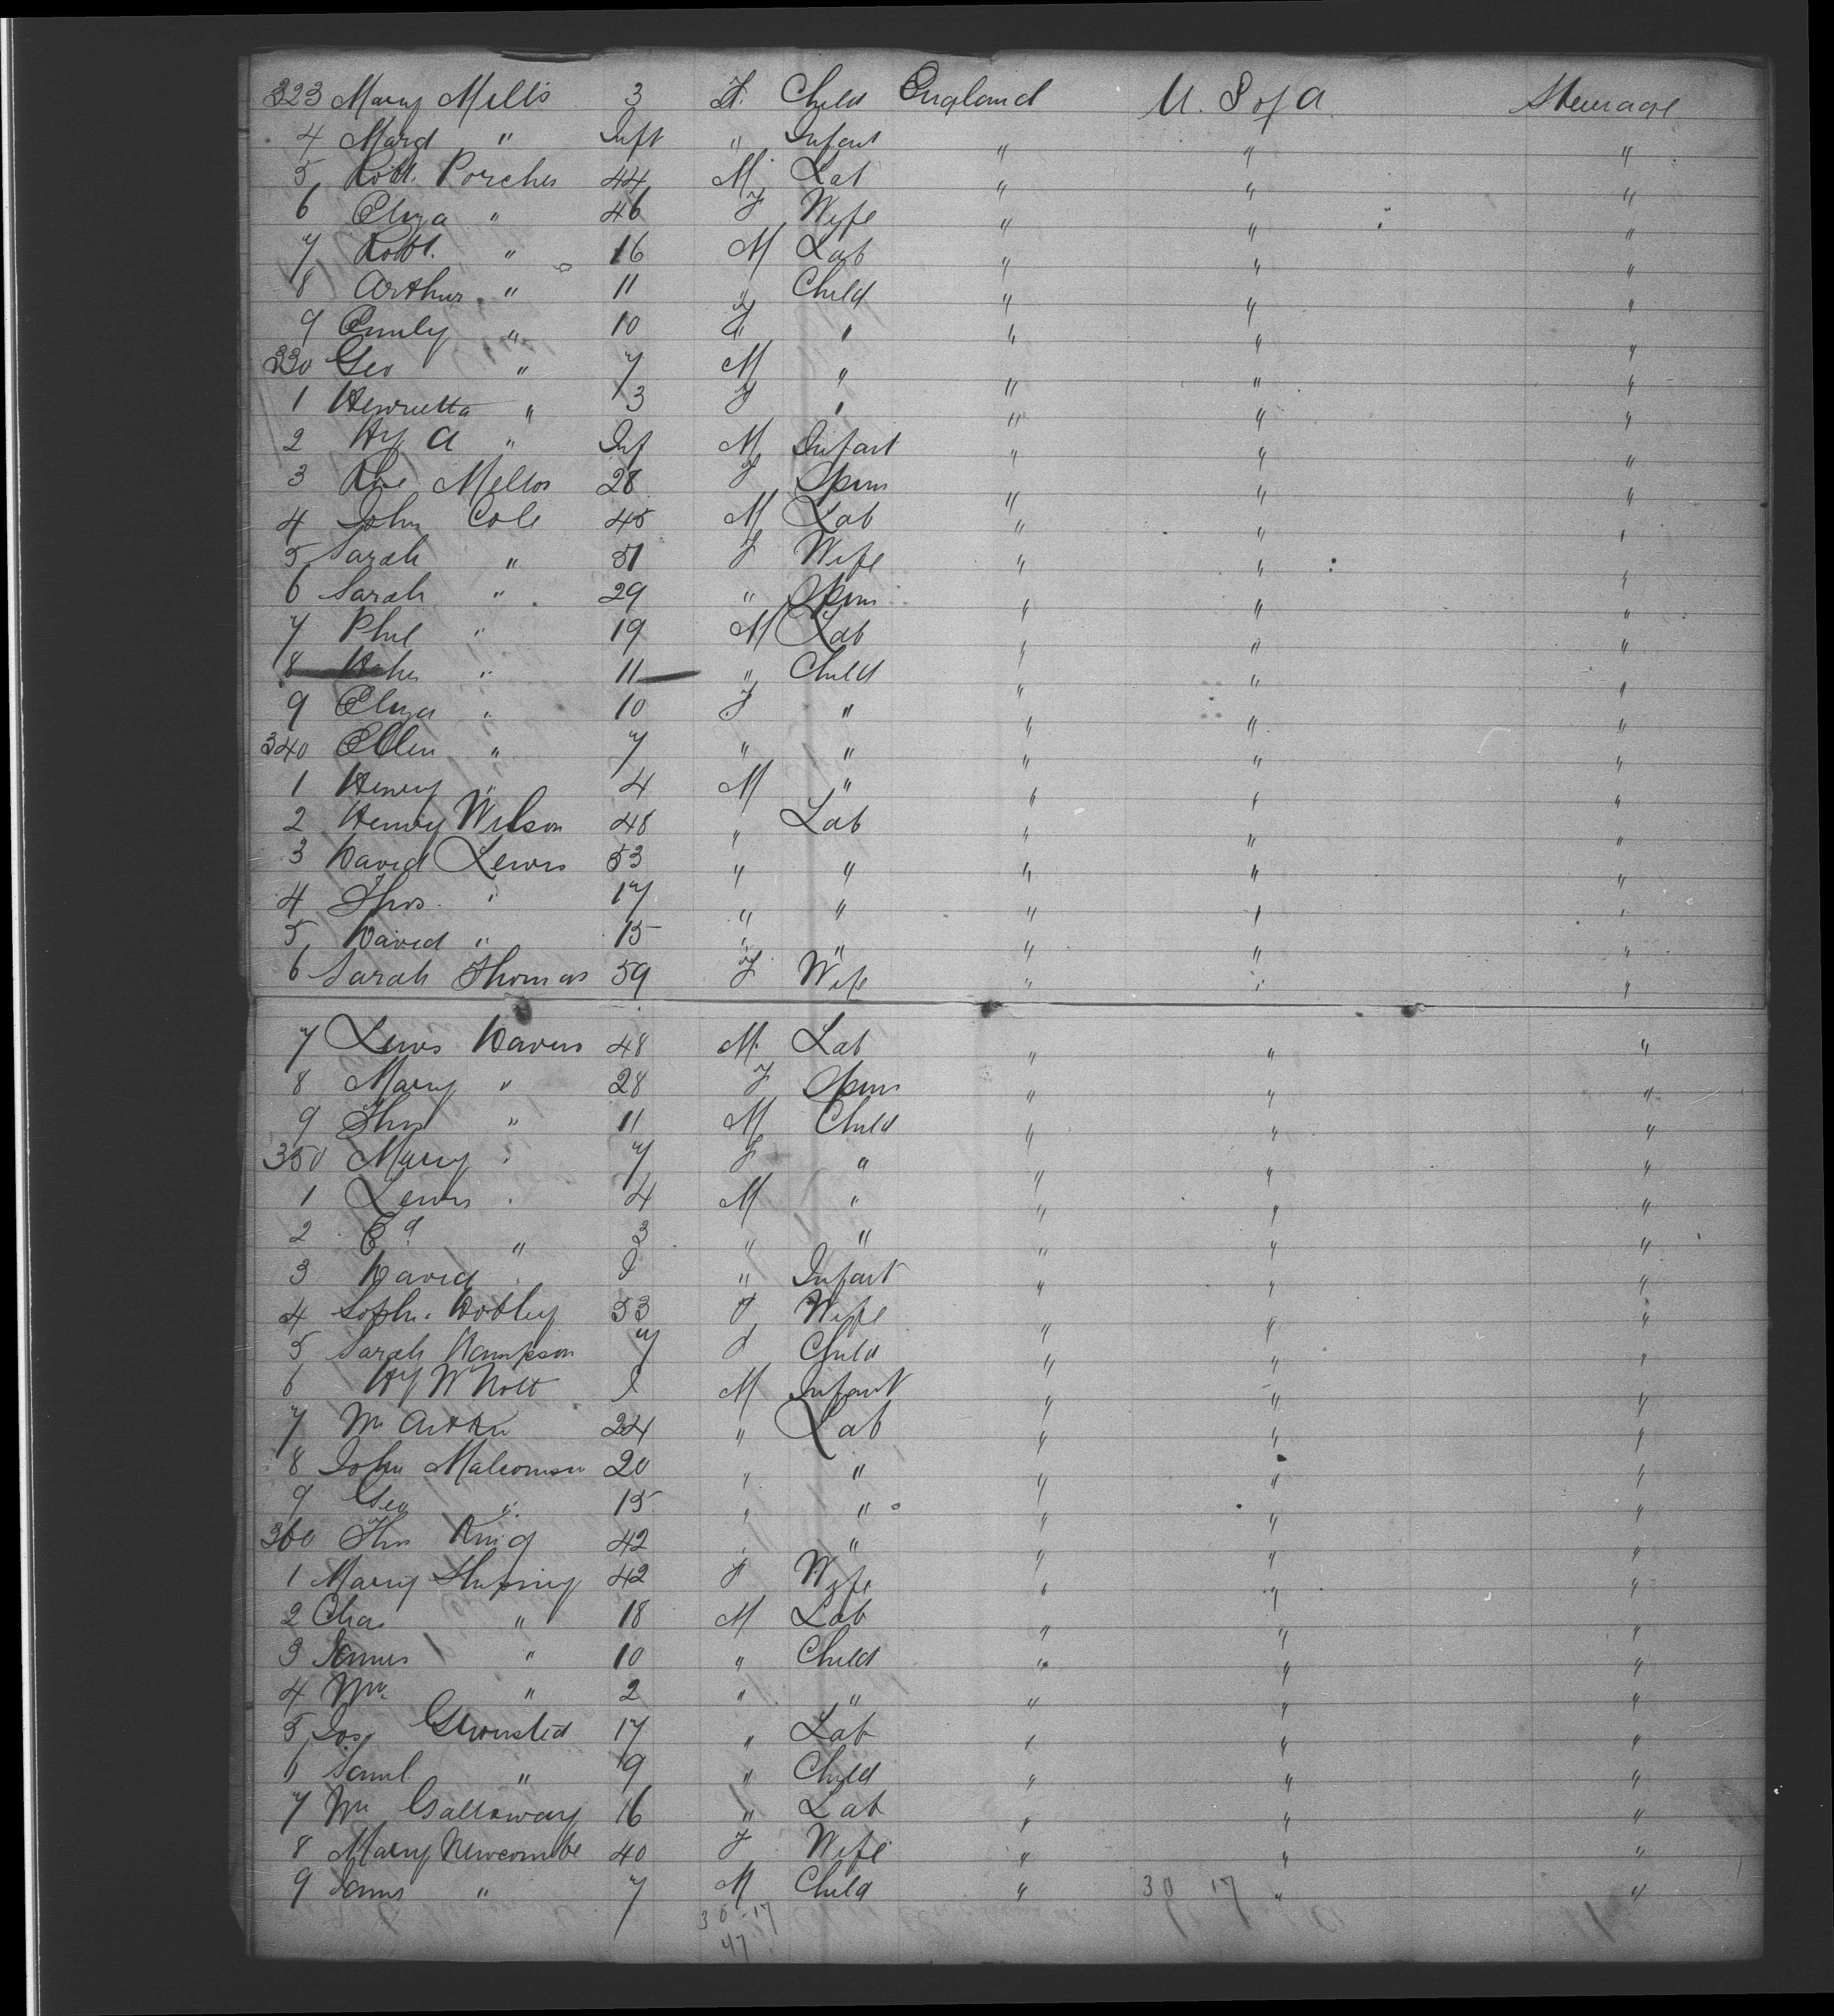 323 Mary Mills 3 F. Child England U. S of A Steerage
4 Margt " Inft " Infant " " "
5 Robt. Porcher 44 M Lab " " "
6 Eliza " 46 F Wife " " "
7 Robt. " 16 M Lab " " "
8 Arthur " 11 " Child " " "
9 Emily " 10 F " " " "
330 Geo " 7 M " " " "
1 Henrietta " 3 F " " " "
2 Hy A " Inf M Infant " " "
3 Mellor 28 F Spins " " "
4 John Cole 45 M Lab " " "
5 Sarah " 51 F Wife " " "
6 Sarah " 29 " Spins " " "
7 Phil " 19 M Lab " " "
8 " 11 " Child " " "
9 Eliza " 10 F " " " "
340 Ellen " 7 " " " " "
1 Henry " 4 M " " " "
2 Henry Wilson 48 " Lab " " "
3 David Lewis 53 " " " " "
4 Thos " 17 " " " " "
5 David " 15 " " " " "
6 Sarah Thomas 59 F Wife " " "
7 Lewis Davies 48 M. Lab " " "
8 Mary " 28 F Spins " " "
9 Thos " 11 M Child " " "
350 Mary " 7 F " " " "
1 Lewis " 4 M " " " "
2 Ed " 3 " " " " "
3 David " I " Infant " " "
4 Soph. 53 F Wife " " "
5 Sarah Hampson 7 F Child " " "
6 Hy W Nott I M Infant " " "
7 Wm 24 " Lab " " "
8 John Malcomson 20 " " " " "
9 Geo " 15 " " " " "
360 Thos King 42 " " " " "
1 Mary 42 F Wife " " "
2 Chas " 18 M Lab " " "
3 James " 10 " Child " " "
4 Wm " 2 " " " " "
5 Jos 17 " Lab " " "
6 Saml. " 9 " Child " " "
7 Wm Galloway 16 " Lab " " "
8 Mary Newcombe 40 F Wife " " "
9 James " 7 M Child " 30 17 " "
30-17
47